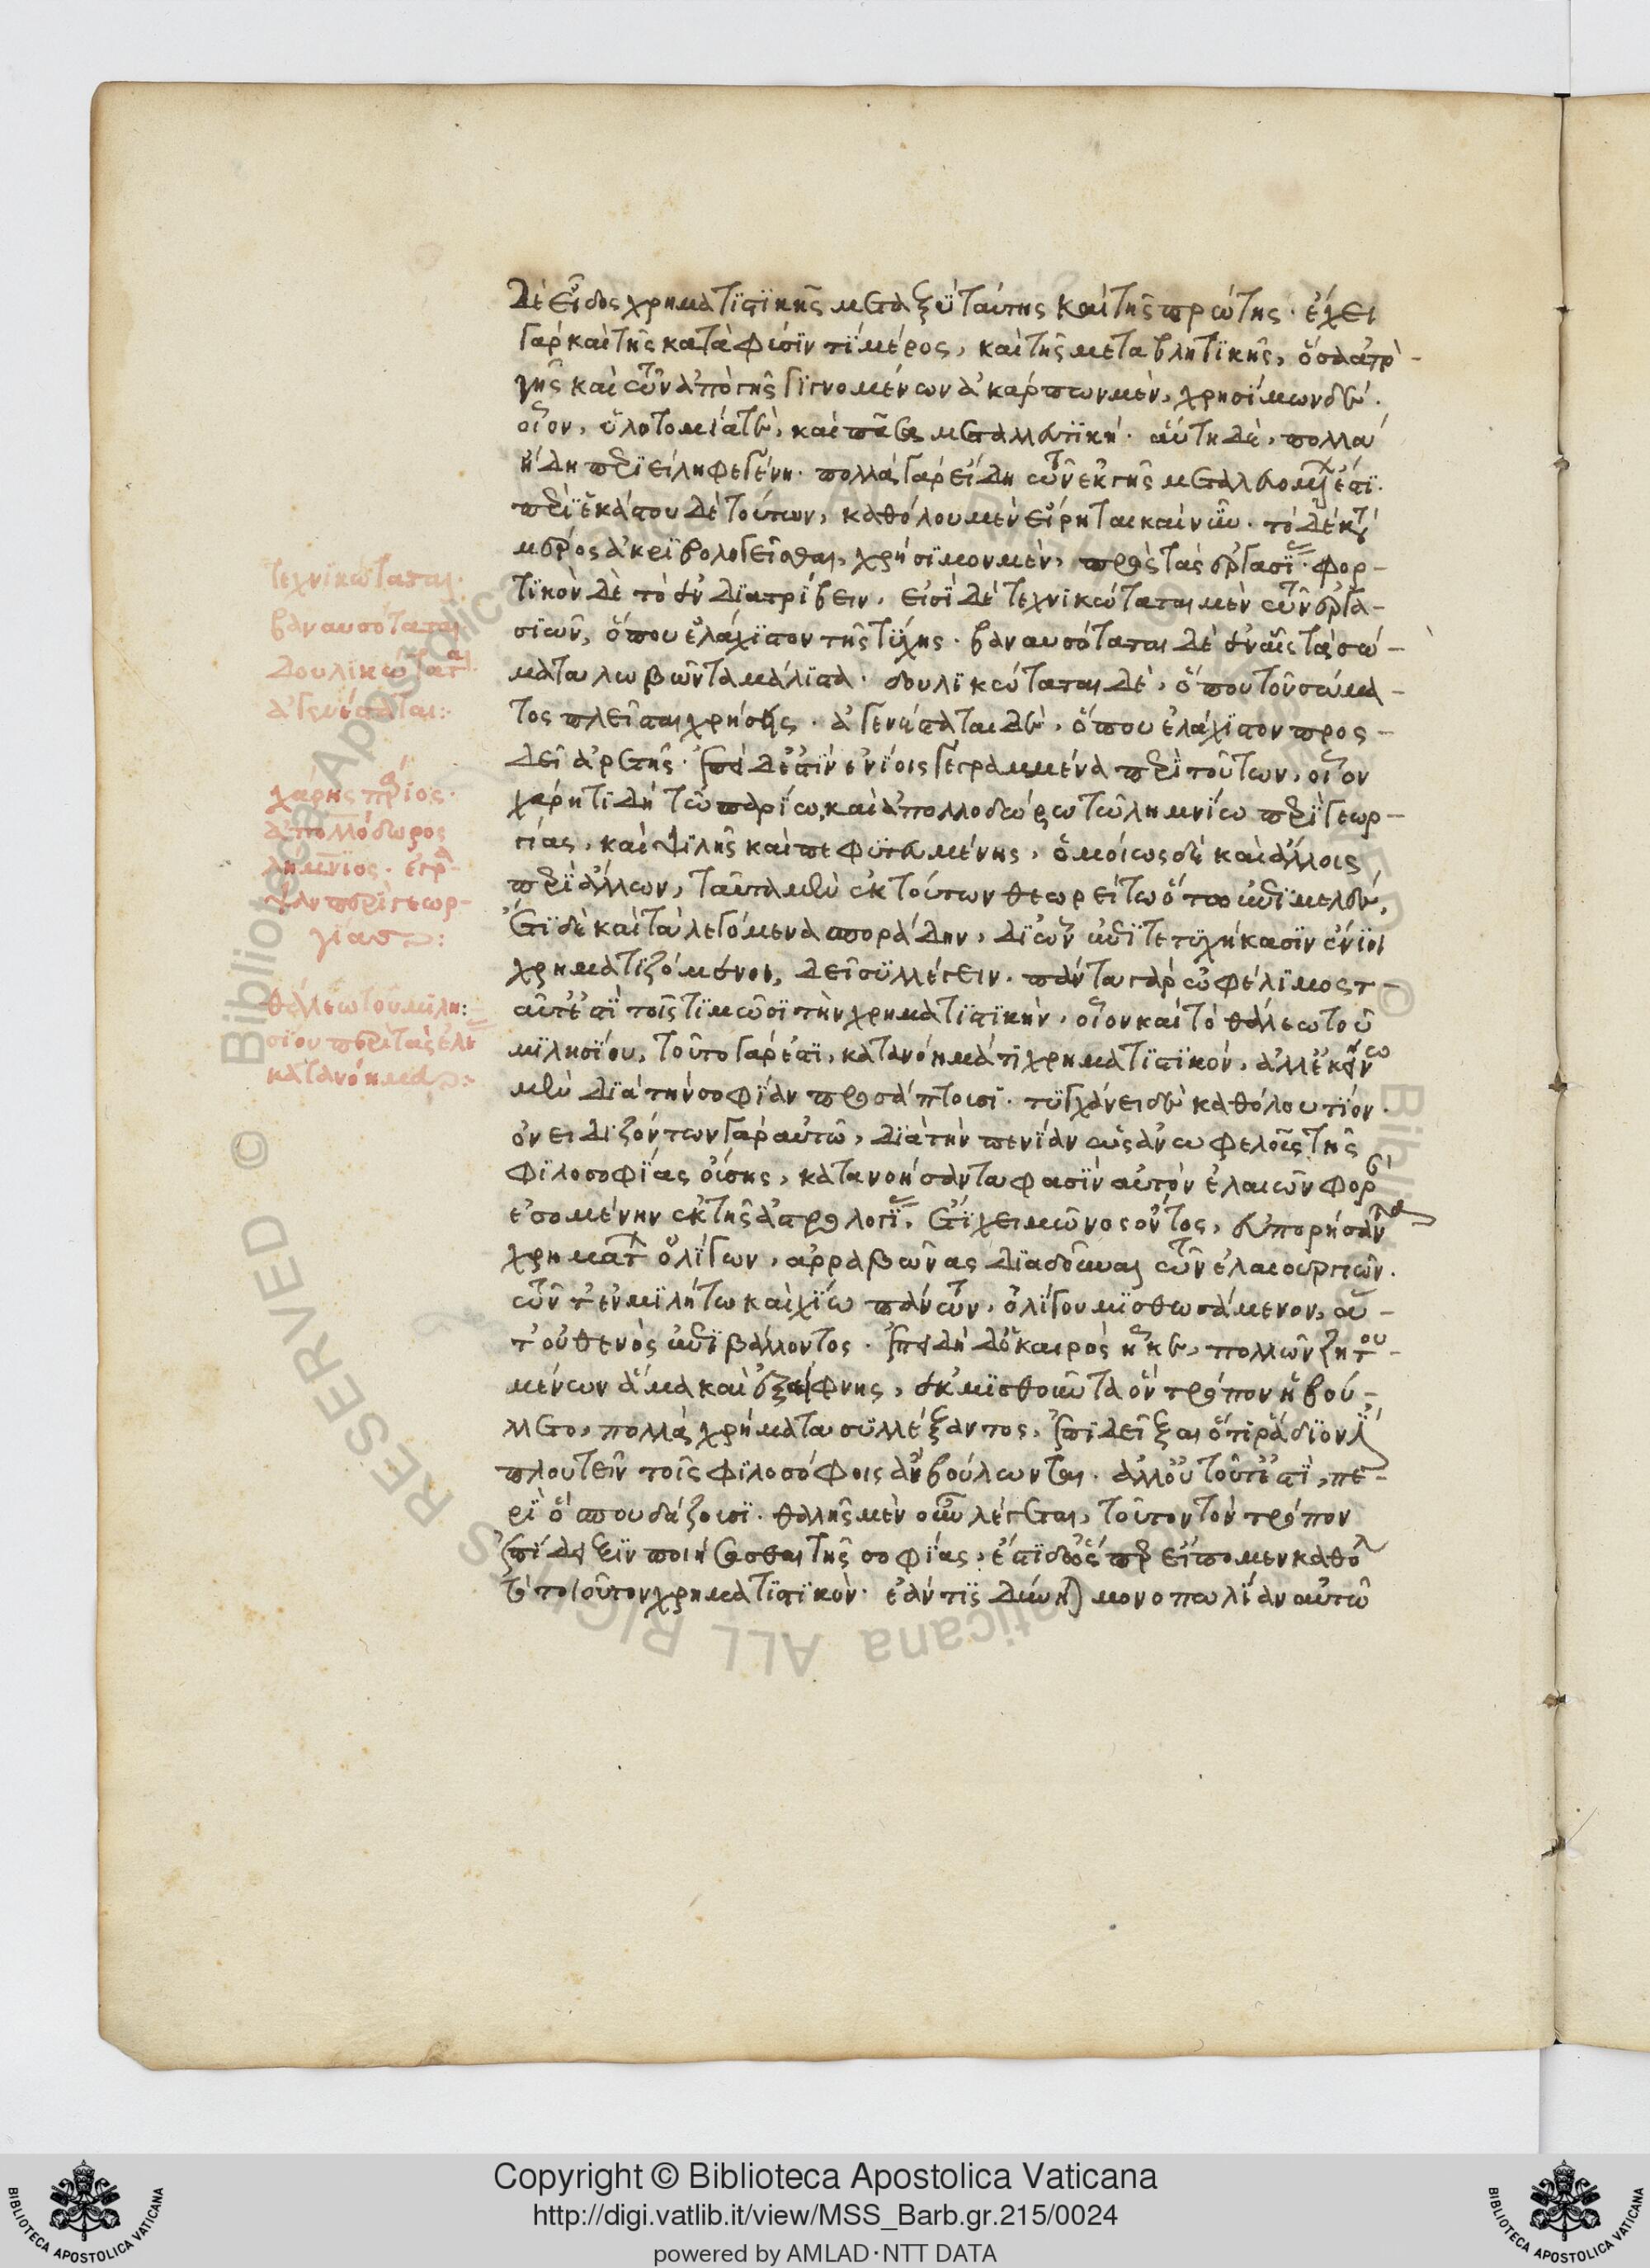 δὲ εἶδος χρηματιστικῆς μεταξὺ ταύτης καὶ τῆς πρώτης · ἔχει
γὰρ καὶ τῆς κατὰ φύσιν τι μέρος, καὶ τῆς μεταβλητικῆς, ὅσα ἀπὸ
γῆς καὶ τῶν ἀπὸ γῆς γιγνομένων ἀκάρπων μὲν, χρησίμων δέ ·
οἷον, ὑλοτομία τὲ, καὶ πᾶσα μεταλλευτική · αὕτη δὲ, πολλὰ
ἤδη περιείληφε γένη · πολλὰ γὰρ εἴδη τῶν ἐκ γῆς μεταλλευομένων ἐστί ·
περὶ ἑκάστου δὲ τούτων, καθόλου μὲν εἴρηται καὶ νῦν · τὸ δὲ κατὰ
μέρος ἀκριβολογεῖσθαι, χρήσιμον μὲν, πρὸς τὰς ἐργασίας · φορ-
τικὸν δὲ τὸ ἐνδιατρίβειν · εἰσὶ δὲ τεχνικώταται μὲν τῶν ἐργα-
σιῶν, ὅπου ἐλάχιστον τῆς τύχης · βαναυσόταται δὲ ἐν αἷς τὰ σώ-
ματα λωβῶνται μάλιστα · δουλικώταται δὲ, ὅπου τοῦ σώμα-
τος πλεῖσται χρήσεις · ἀγενέσταται δὲ, ὅπου ἐλάχιστον προς-
δεῖ ἀρετῆς · ἐπεὶ δέ ἐστιν ἐνίοις γεγραμμένα περὶ τούτων, οἷον
χάρητι δὴ τῷ παρίῳ, καὶ ἀπολλοδώρῳ τῷ λημνίῳ περὶ γεωρ-
γίας, καὶ ψιλῆς καὶ πεφυτευμένης, ὁμοίως δὲ καὶ ἄλλοις
περὶ ἄλλων, ταῦτα μὲν ἐκ τούτων θεωρείτω ὅτῳ ἐπιμελές,
ἔτι δὲ καὶ τὰ λεγόμενα σποράδην, δι' ὧν ἐπιτετυχήκασιν ἔνιοι
χρηματιζόμενοι, δεῖ συλλέγειν · πάντα γὰρ ὠφέλιμος τ-
αῦτ' ἐστὶ τοῖς τιμῶσι τὴν χρηματιστικήν · οἷον καὶ τὸ θάλεω τοῦ
μιλησίου, τοῦτο γάρ ἐστι, κατανόημά τι χρηματιστικόν, ἀλλ' ἐκείνῳ
μὲν διὰ τὴν σοφίαν προσάπτουσι · τυγχάνει δὲ καθόλου τι ὄν ·
ὀνειδιζόντων γὰρ αὐτῷ, διὰ τὴν πενίαν ὡς ἀνωφελοῦς τῆς
φιλοσοφίας οὔσης, κατανοήσαντά φασιν αὐτὸν ἐλαιῶν φορὰν
ἐσομένην ἐκ τῆς ἀστρολογίας, ἔτι χειμῶνος ὄντος, εὐπορήσαντα
χρημάτων ὀλίγων, ἀρραβῶνας διαδοῦναι τῶν ἐλαιουργιῶν ·
τῶν τ' ἐν μιλήτῳ καὶ χίῳ πάντων, ὀλίγου μισθωσάμενον, ἅ-
τ' οὐθενὸς ἐπιβάλλοντος · ἐπειδὴ δ' ὁ καιρὸς ἧκε, πολλῶν ζητου-
μένων ἅμα καὶ ἐξαίφνης, ἐκμισθοῦντα ὃν τρόπον ἠβού-
λετο, πολλὰ χρήματα συλλέξαντος, ἐπιδεῖξαι ὅτι ῥᾴδιόν ἐστι
πλουτεῖν τοῖς φιλοσόφοις ἂν βούλωνται · ἀλλ' οὐ τοῦτ' ἐστὶ, πε-
ρὶ ὃ σπουδάζουσι · θαλῆς μὲν οὖν λέγεται, τοῦτον τὸν τρόπον
ἐπίδειξιν ποιήσασθαι τῆς σοφίας, ἔστι δ' ὥσπερ εἴπομεν καθόλου
τὸ τοιοῦτον χρηματιστικὸν · ἐάν τις δύνηται μονοπωλίαν αὑτῷ
τεχνικώταται ·
βαναυσόταται
δουλικώταται ·
ἀγενέσταται :
χάρης πάριος ·
ἀπολλόδωρος
λήμνιος · ἔγρα-
ψαν περὶ γεωρ-
γίας :
θάλεω τοῦ μιλη:
σίου περὶ τὰς ἐλαίας
κατανόημα :
Copyright © Biblioteca Apostolica Vaticana
http://digi.vatlib.it/view/MSS_Barb.gr.215/0024
powered by AMLAD·NTT DATA
BIBLIOTECA APOSTOLICA VATICANA
BIBLIOTECA APOSTOLICA VATICANA